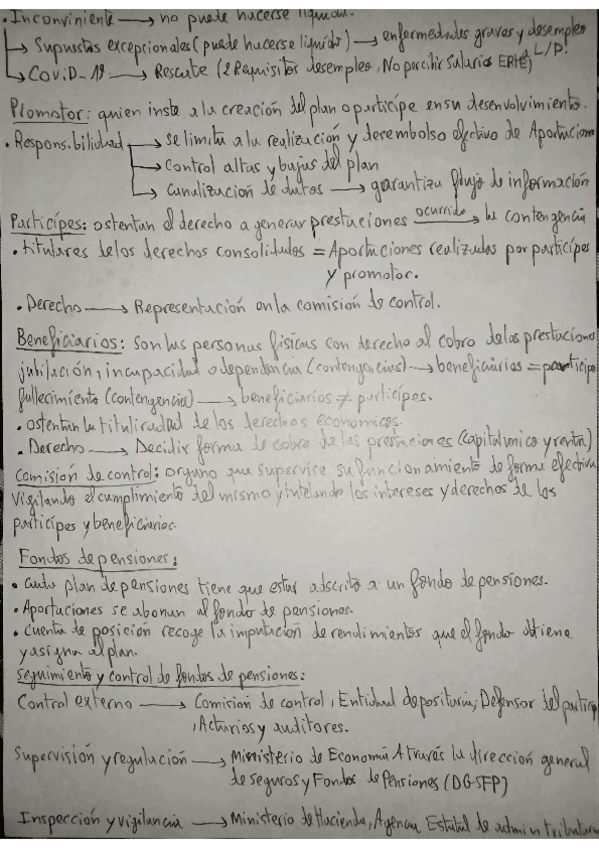 . Inconviniente → no puede hacerse liquido.
→ Supuestos excepcionales (puede hacerse liquido) → enfermedades graves y desempleo L/P!
→ CoviD-19 → Rescate (2 Requisitos desempleo, No percibir salario ERTE)
Plomotor: quien insta a la creación del plan o partícipe en su desenvolvimiento.
. Responsibilidad → se limita a la realización y desembolso efectivo de Aportacione
→ Control altas y bajas del plan
→ Canalización de datos → garantiza flujo de información
Partícipes: ostentan el derecho a generar prestaciones ocurrido → la contengencia
. titulares de los derechos consolidados = Aportaciones realizadas por partícipes
y promotor.
. Derecho → Representación en la comisión de control.
Beneficiarios: son las personas fisicas con derecho al cobro de las prestaciones
jubilación, incapacidad o dependencia (contengencias) → beneficiarios = participe
fallecimiento (contengencia) → beneficiarios ≠ partícipes.
. ostentan la titularidad de los derechos economicos.
. Derecho → Decidir forma de cobro de las prestaciones (capital unico y renta)
Comisión de control: organo que supervise su funcionamiento de forma efectiva
Vigilando el cumplimiento del mismo y tutelando los intereses y derechos de los
partícipes y beneficiarios.
Fondos de pensiones:
. cada plan de pensiones tiene que estar adscrito a un fondo de pensiones.
. Aportaciones se abonan al fondo de pensiones.
. cuenta de posición recoge la imputación de rendimientos que el fondo obtiene
y asigna al plan.
Seguimiento y control de fondos de pensiones:
Control externo → Comición de control, Entidad depositaria, Defensor del particip
, Actuarios y auditores.
Supervisión y regulación → Ministerio de Economía A través la dirección general
de seguros y Fondos de Pensiones (DG-SFP)
Inspección y vigilancia → Ministerio de Hacienda, Agencia Estatal de admin tributaria